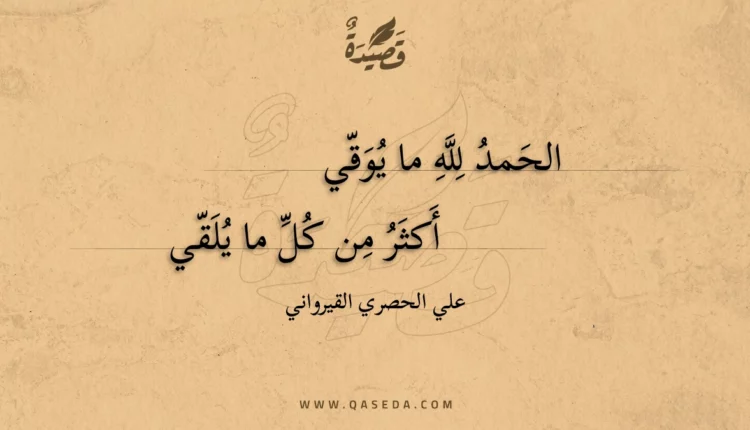 قَصِيدَةٌ
الحَمدُ لِلَّهِ ما يُوَقّي
أَكثَرُ مِن كُلِّ ما يُلَقّي
علي الحصري القيرواني
WWW.QASEDA.COM